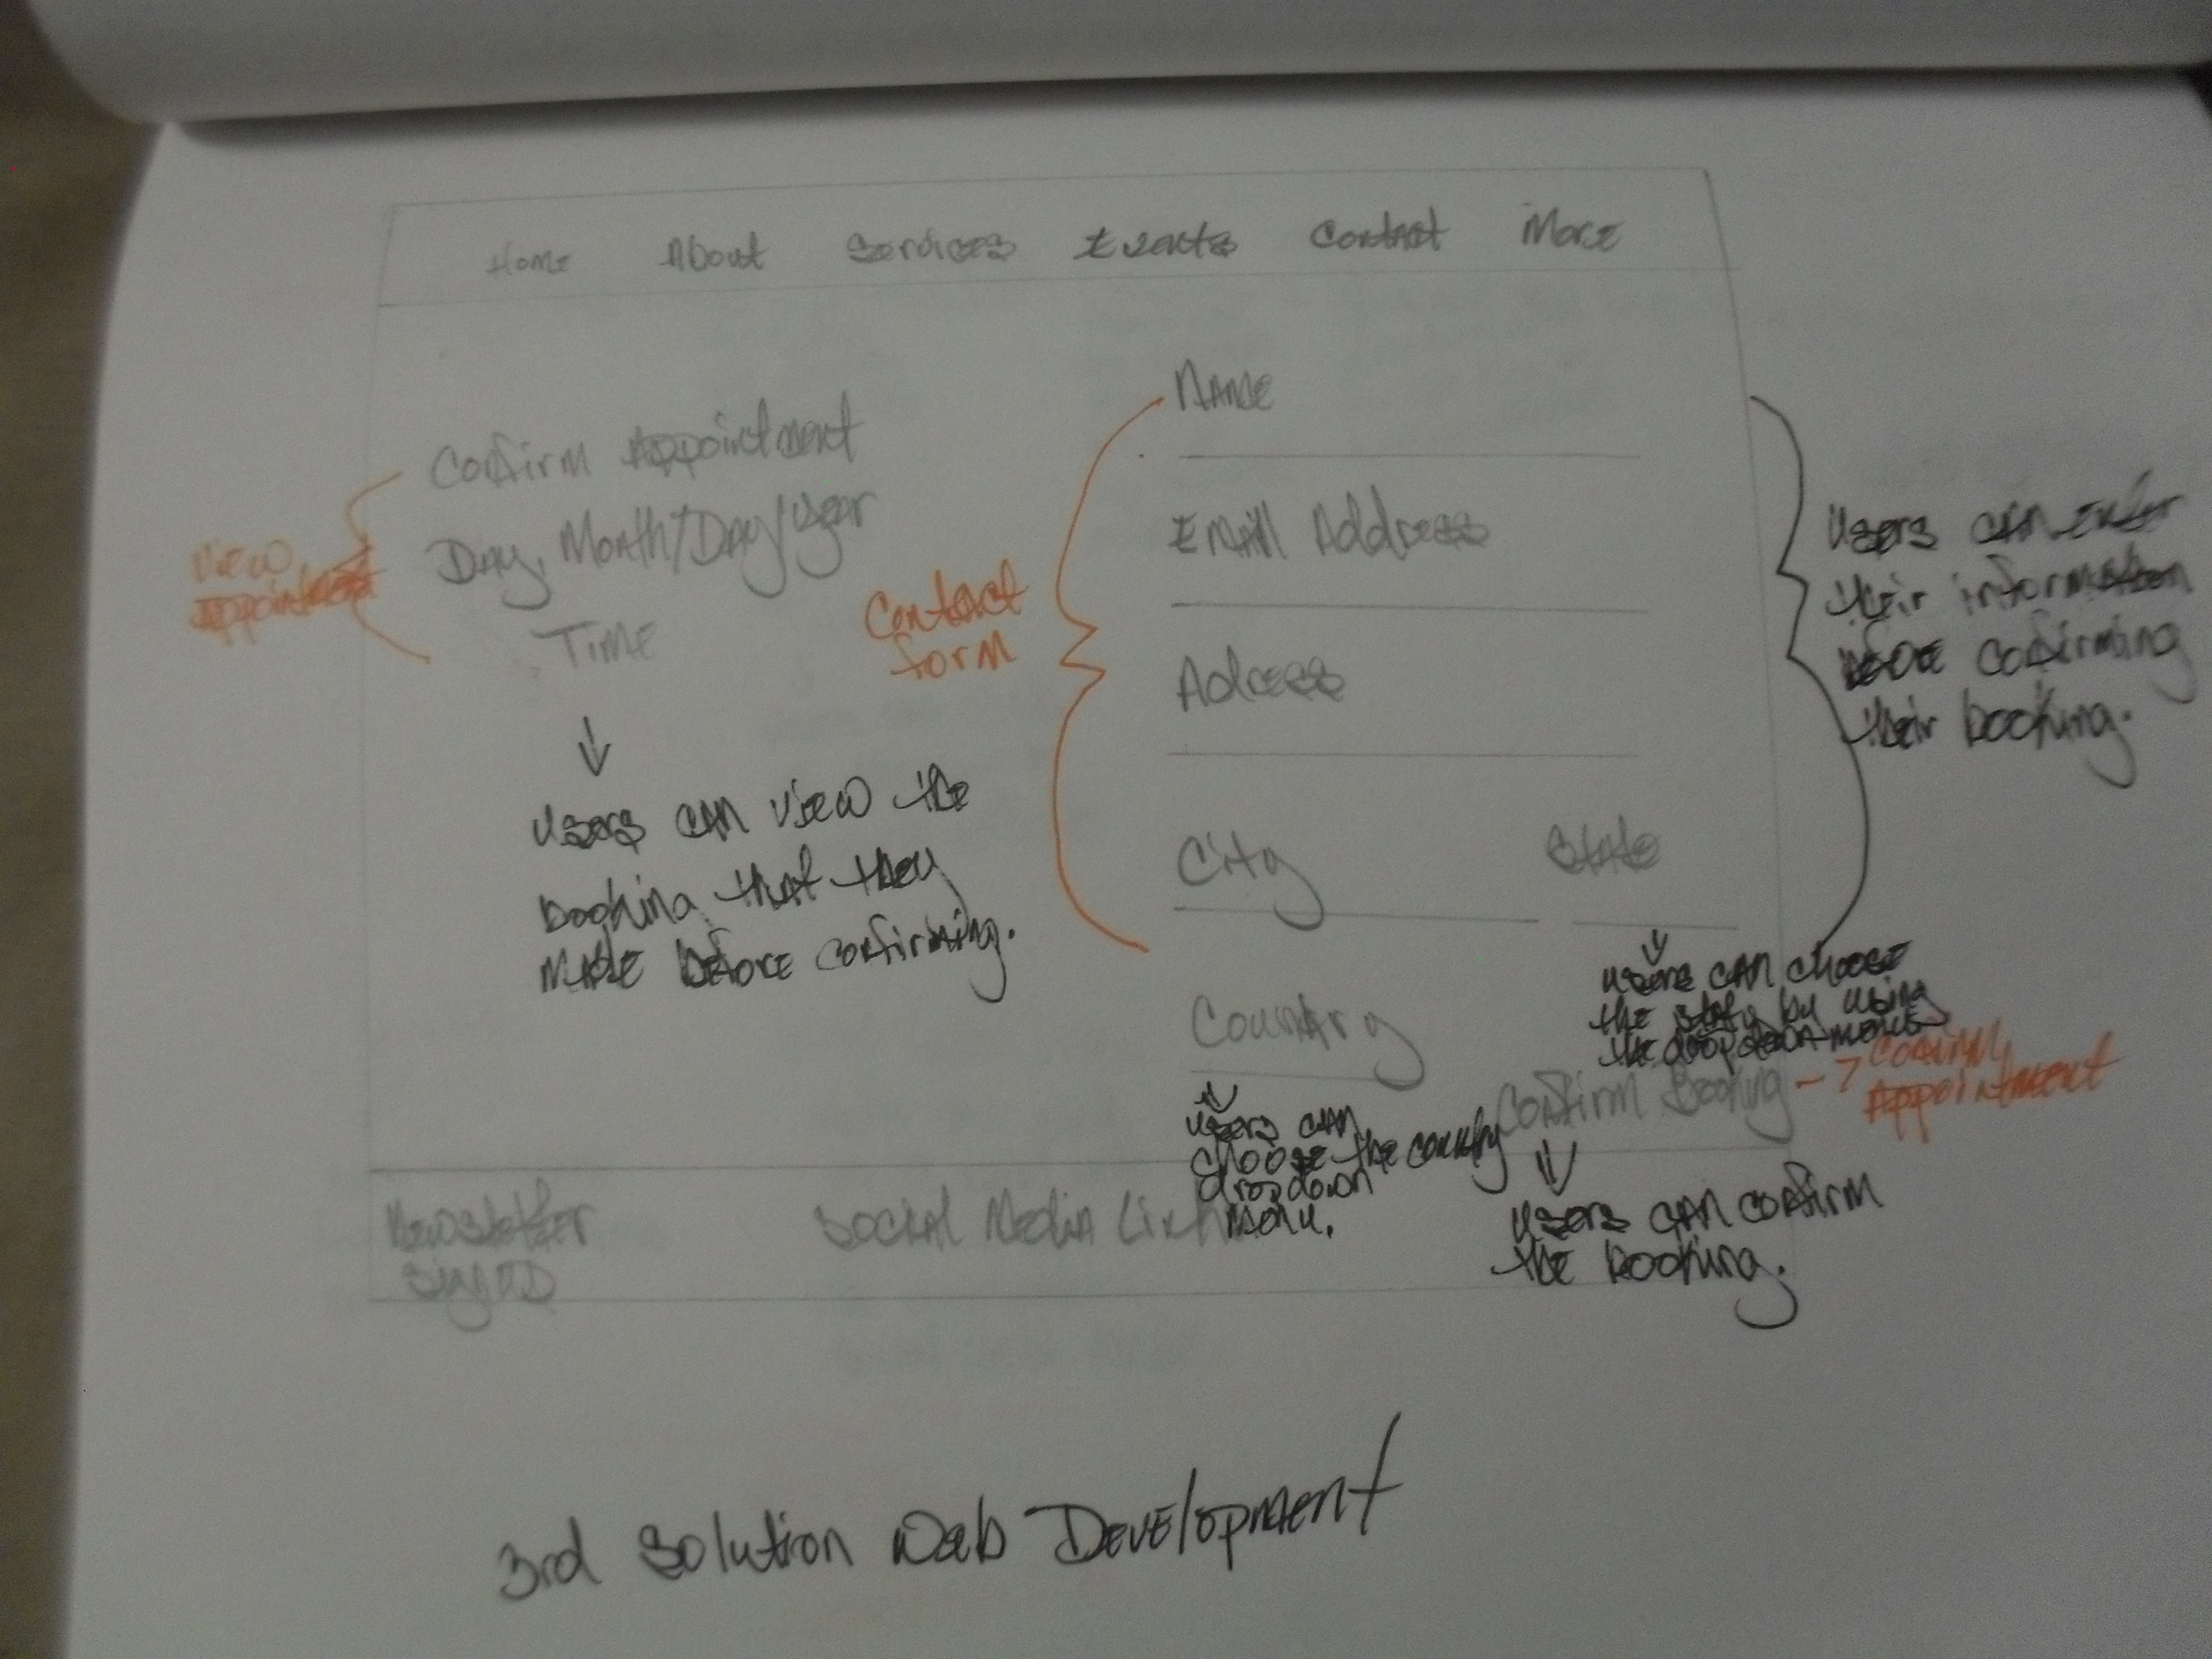 Home About Services Events Contact More
Confirm Appointment
Day, Month/Day/Year
Time
View
Appointment
Users can view the
booking that they
made before confirming.
Contact
form
Name
Email Address
Adress
City State
Country
Users can enter
their information
before confirming
their booking.
Users can choose
the state by using
the drop down menu
Users can
choose the country
dropdown
menu.
Confirm Booking
Confirm
Appointment
Users can confirm
the booking.
Newsletter
Sign Up
Social Media Links
3rd Solution Web Development